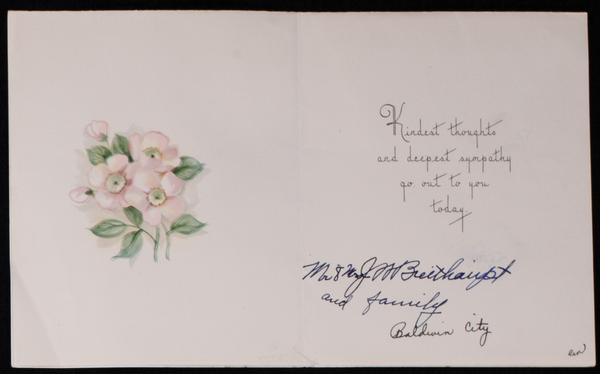 Kindest thoughts
and deepest sympathy
go out to you
today.
Mr & Mrs J W Breithaupt
and family
Baldwin City